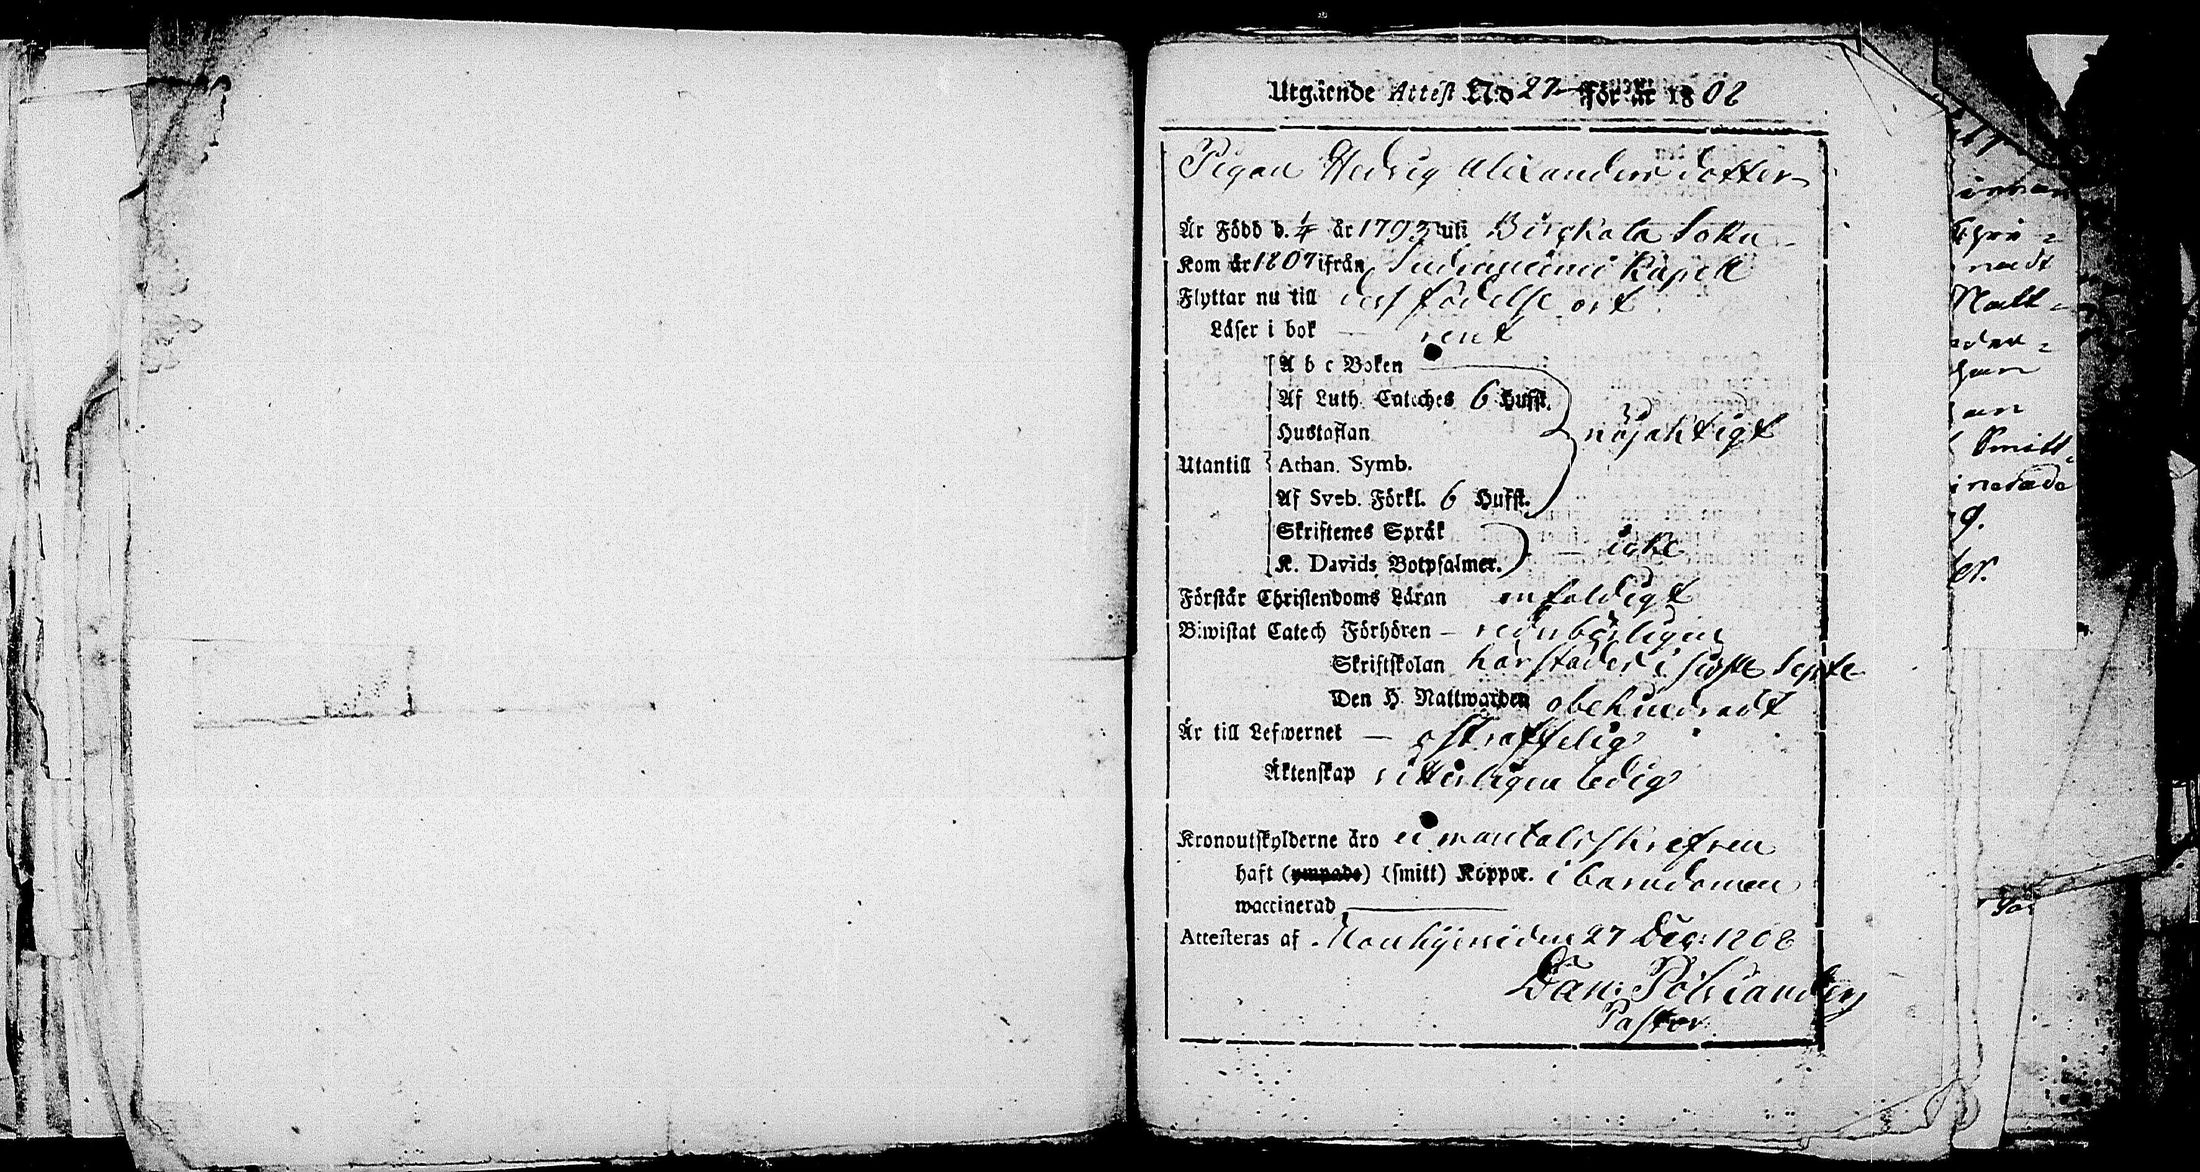 Utgående Attest N:o 27 för år 1808
Pigan Hedvig Alexanders dotter
Är Född d. 1/4 år 1793 uti Birkala Sokn
Kom år 1807 ifrån Kapell
Flyttar nu till dess födelse ort
Läser i bok — rent
A b c Boken —
Af Luth. Cateches 6 Hufst.
Hustaflan nöjaktigt
Utantill Athan. Symb.
Af Sveb. Förkl. 6 Hufst.
Skriftenes Språk
K. Davids Botpsalmer. — icke
Förstår Christendoms Läran enfaldigt
Biwistat Catech Förhören —
Skriftskolan härstädes i sidste Septe
Den H. Nattwarden obehindradt
Är till Lefwernet — ostraffelig
Äktenskap ledig
Kronoutskylderne äro ei mantalsskrefven
haft (ympade) (smitt) Koppor. i barndomen
waccinerad —
Attesteras af den 27 Dec: 1808
Dan:
Pastor